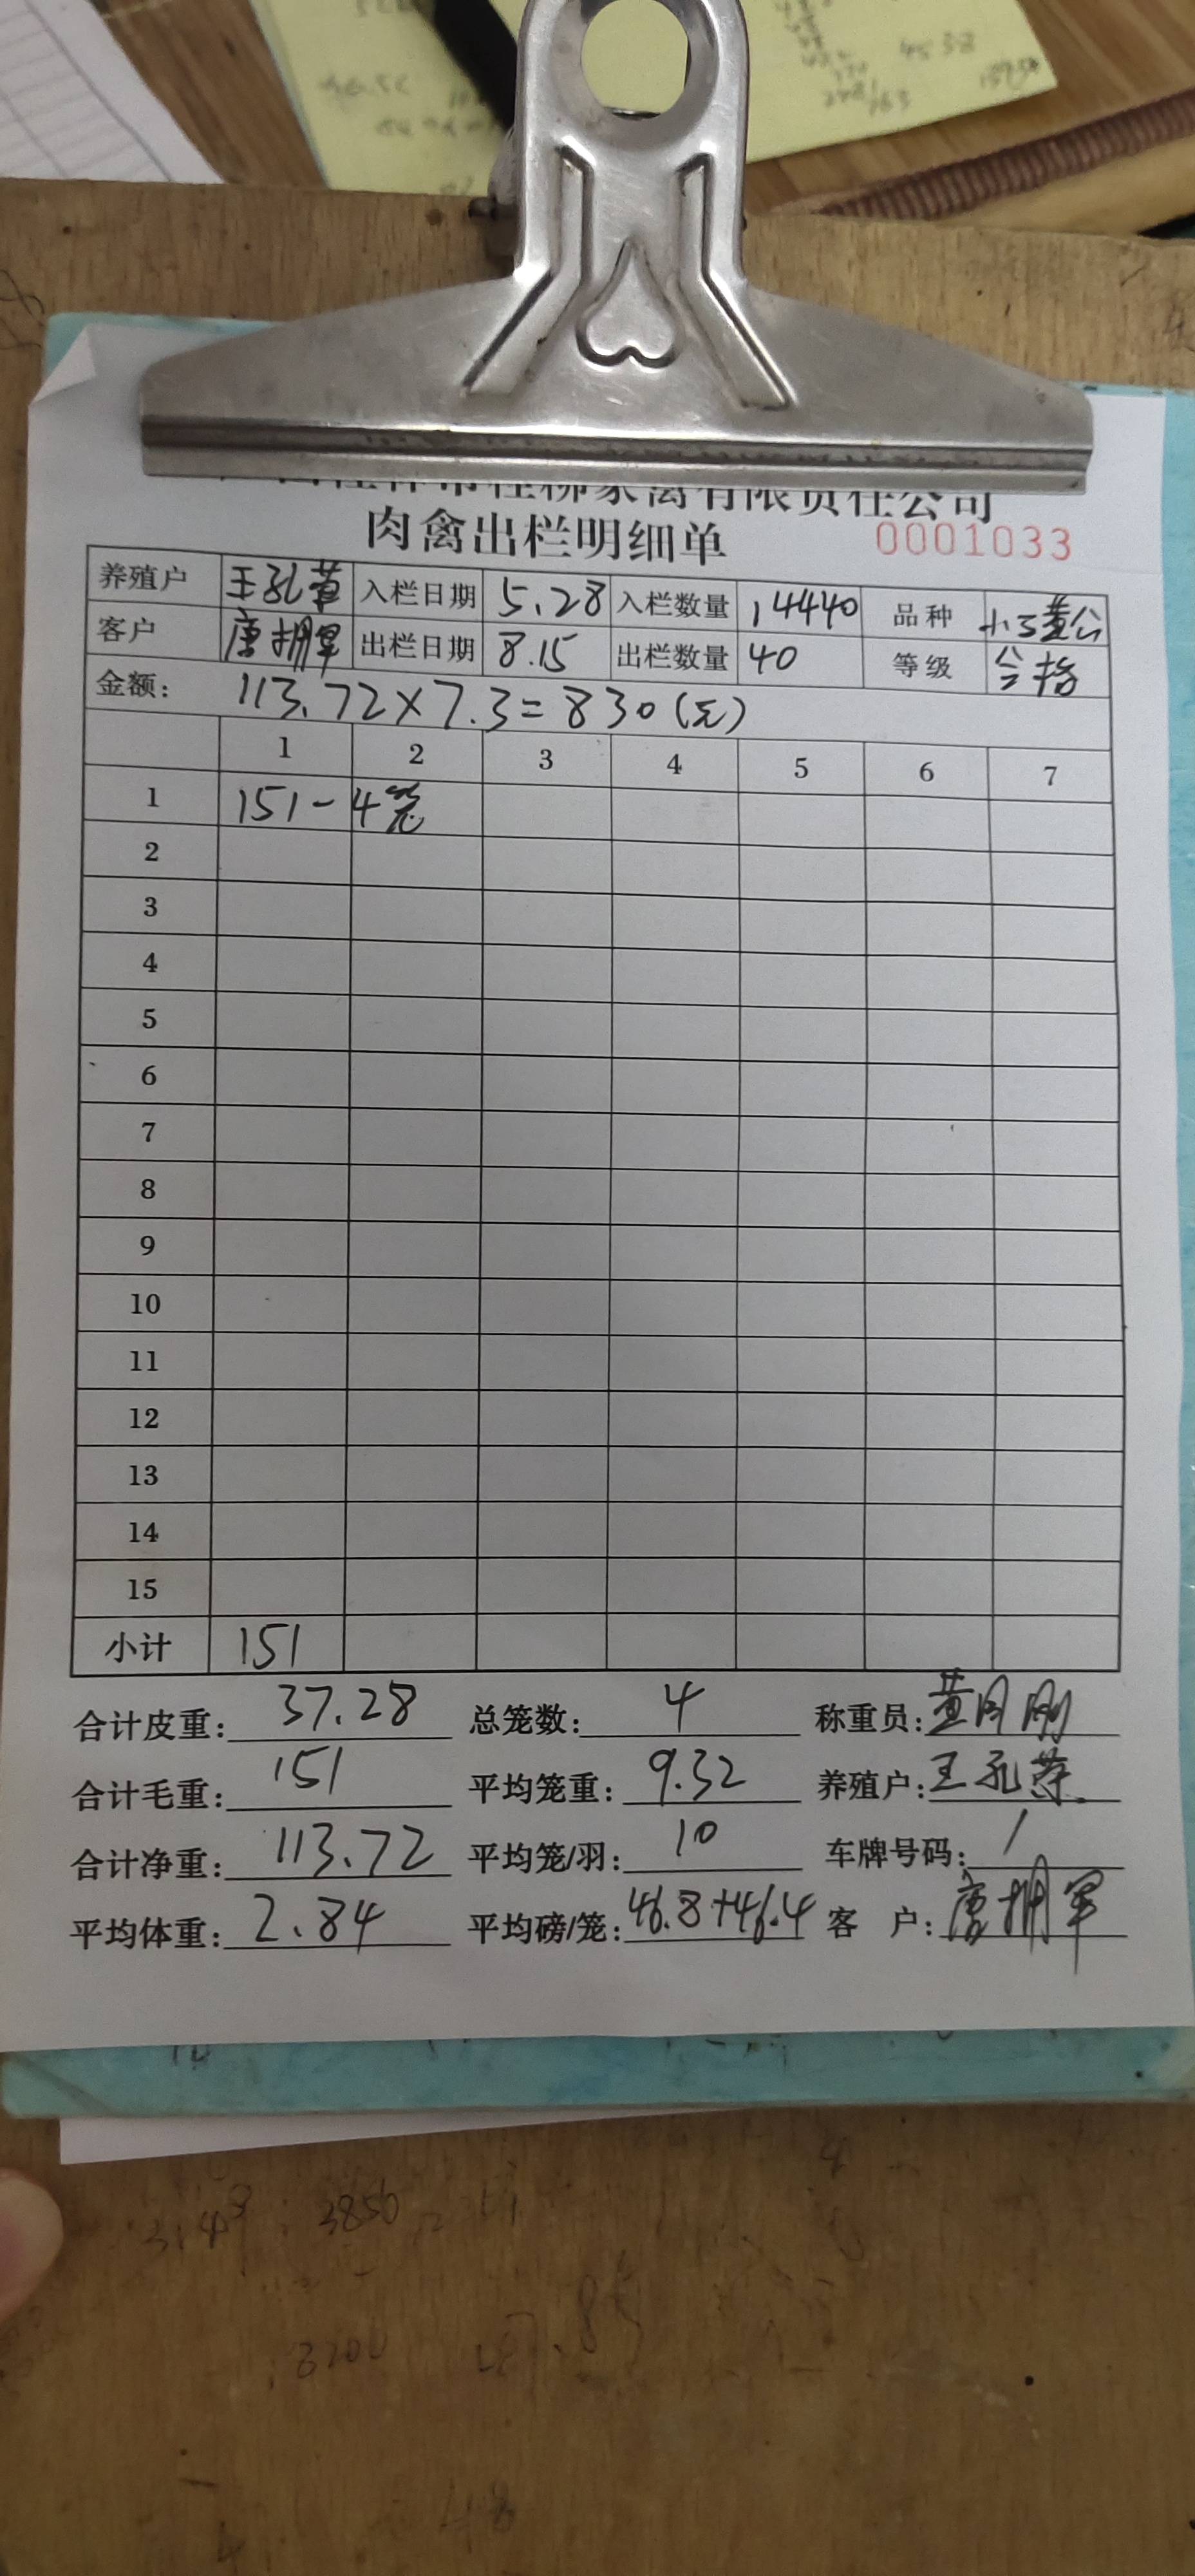 桂柳家禽有限责任公司
肉禽出栏明细单 0001033
养殖户 王孔 入栏日期 5.28 入栏数量 14440 品种
客户 唐拥军 出栏日期 8.15 出栏数量 40 等级 合格
金额： 113.72×7.3=830(元)
1 2 3 4 5 6 7
1 151-4笼
2
3
4
5
6
7
8
9
10
11
12
13
14
15
小计 151
合计皮重： 37.28 总笼数： 4 称重员： 黄月刚
合计毛重： 151 平均笼重： 9.32 养殖户： 王孔
合计净重： 113.72 平均笼/羽： 10 车牌号码： /
平均体重： 2.84 平均磅/笼： 46.8+46.4 客 户： 唐拥军
3850
3200